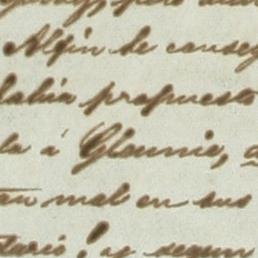 Alfin se conseg
habia propuesto
la á Glaunie, a
tan mal en sus
tario! ay segun